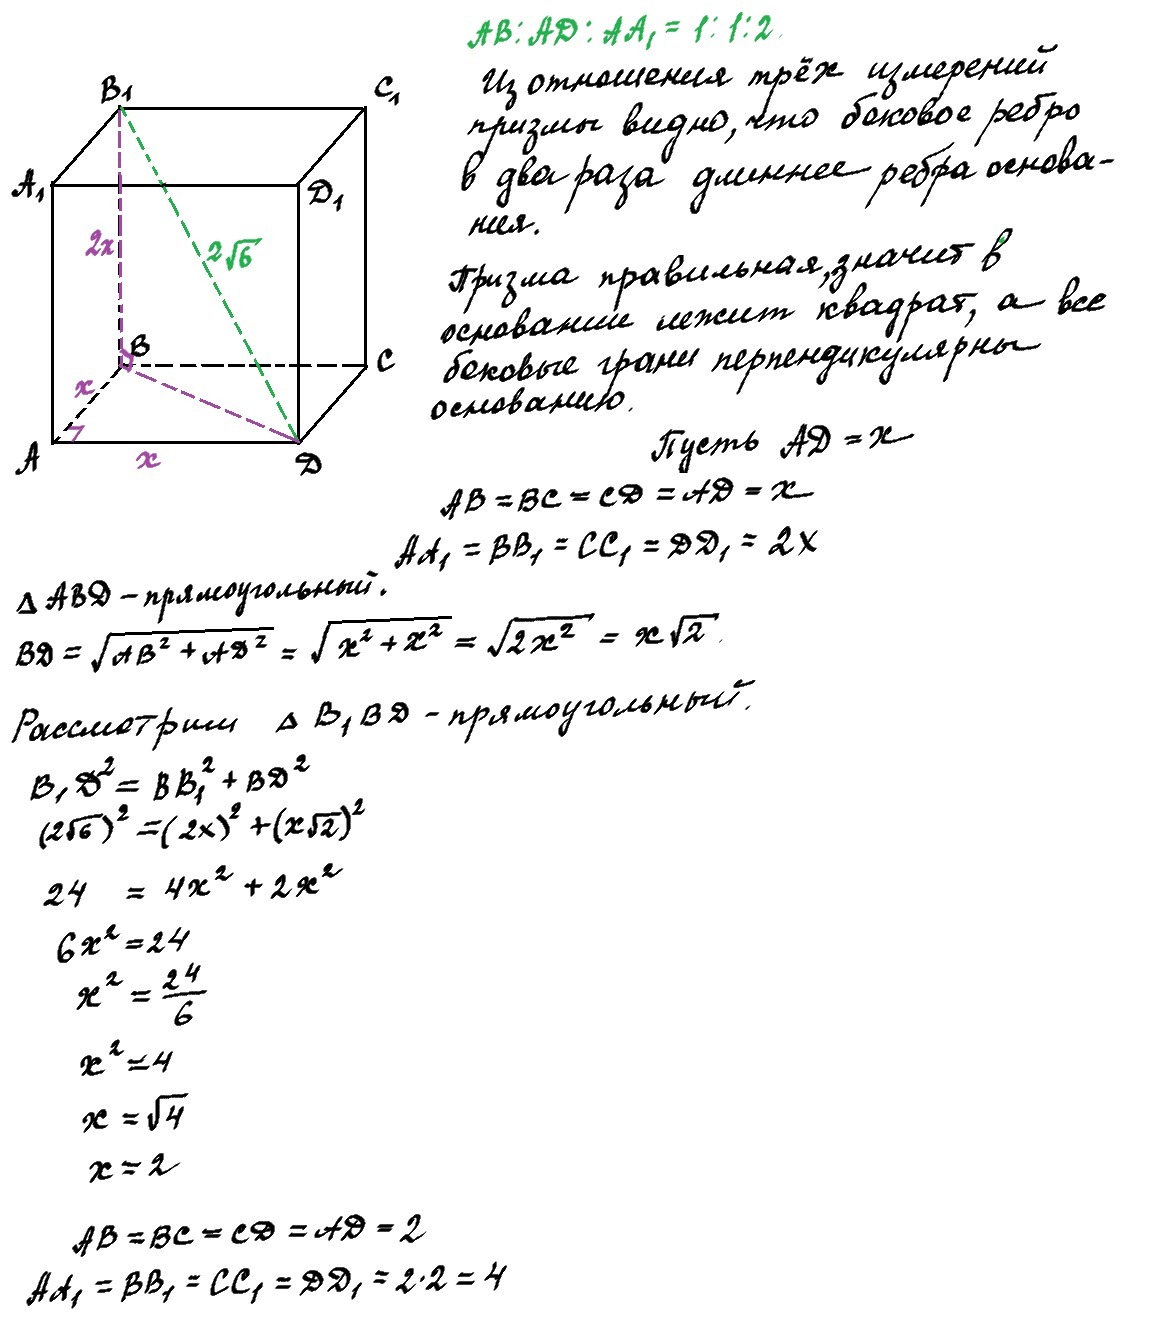 AB : AD : AA₁ = 1 : 1 : 2.
Из отношения трёх измерений
призмы видно, что боковое ребро
в два раза длиннее ребра основа-
ния.
Призма правильная, значит в
основании лежит квадрат, а все
боковые грани перпендикулярны
основанию.
Пусть AD = x
AB = BC = CD = AD = x
AA₁ = BB₁ = CC₁ = DD₁ = 2x
B₁
C₁
A₁
D₁
2x
2√6
B
C
x
A
x
D
Δ ABD – прямоугольный.
BD = √(AB² + AD²) = √(x² + x²) = √(2x²) = x√2.
Рассмотрим Δ B₁BD – прямоугольный.
B₁D² = BB₁² + BD²
(2√6)² = (2x)² + (x√2)²
24 = 4x² + 2x²
6x² = 24
x² = 24/6
x² = 4
x = √4
x = 2
AB = BC = CD = AD = 2
AA₁ = BB₁ = CC₁ = DD₁ = 2·2 = 4